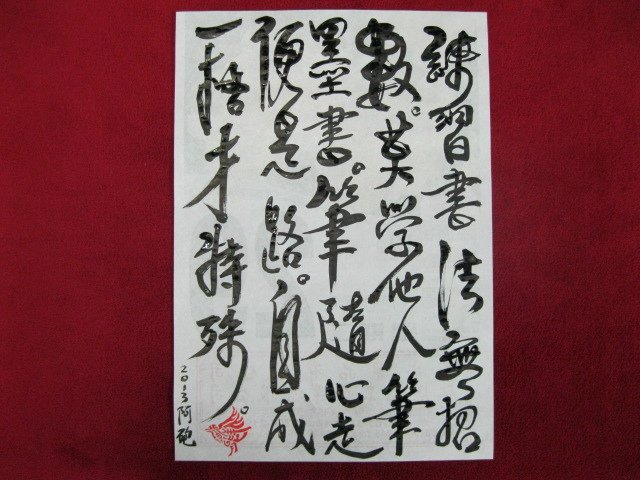 練習書法無招
數。莫學他人筆
墨書。筆隨心走
便是路。自成
一格才特殊。
2013阿砲